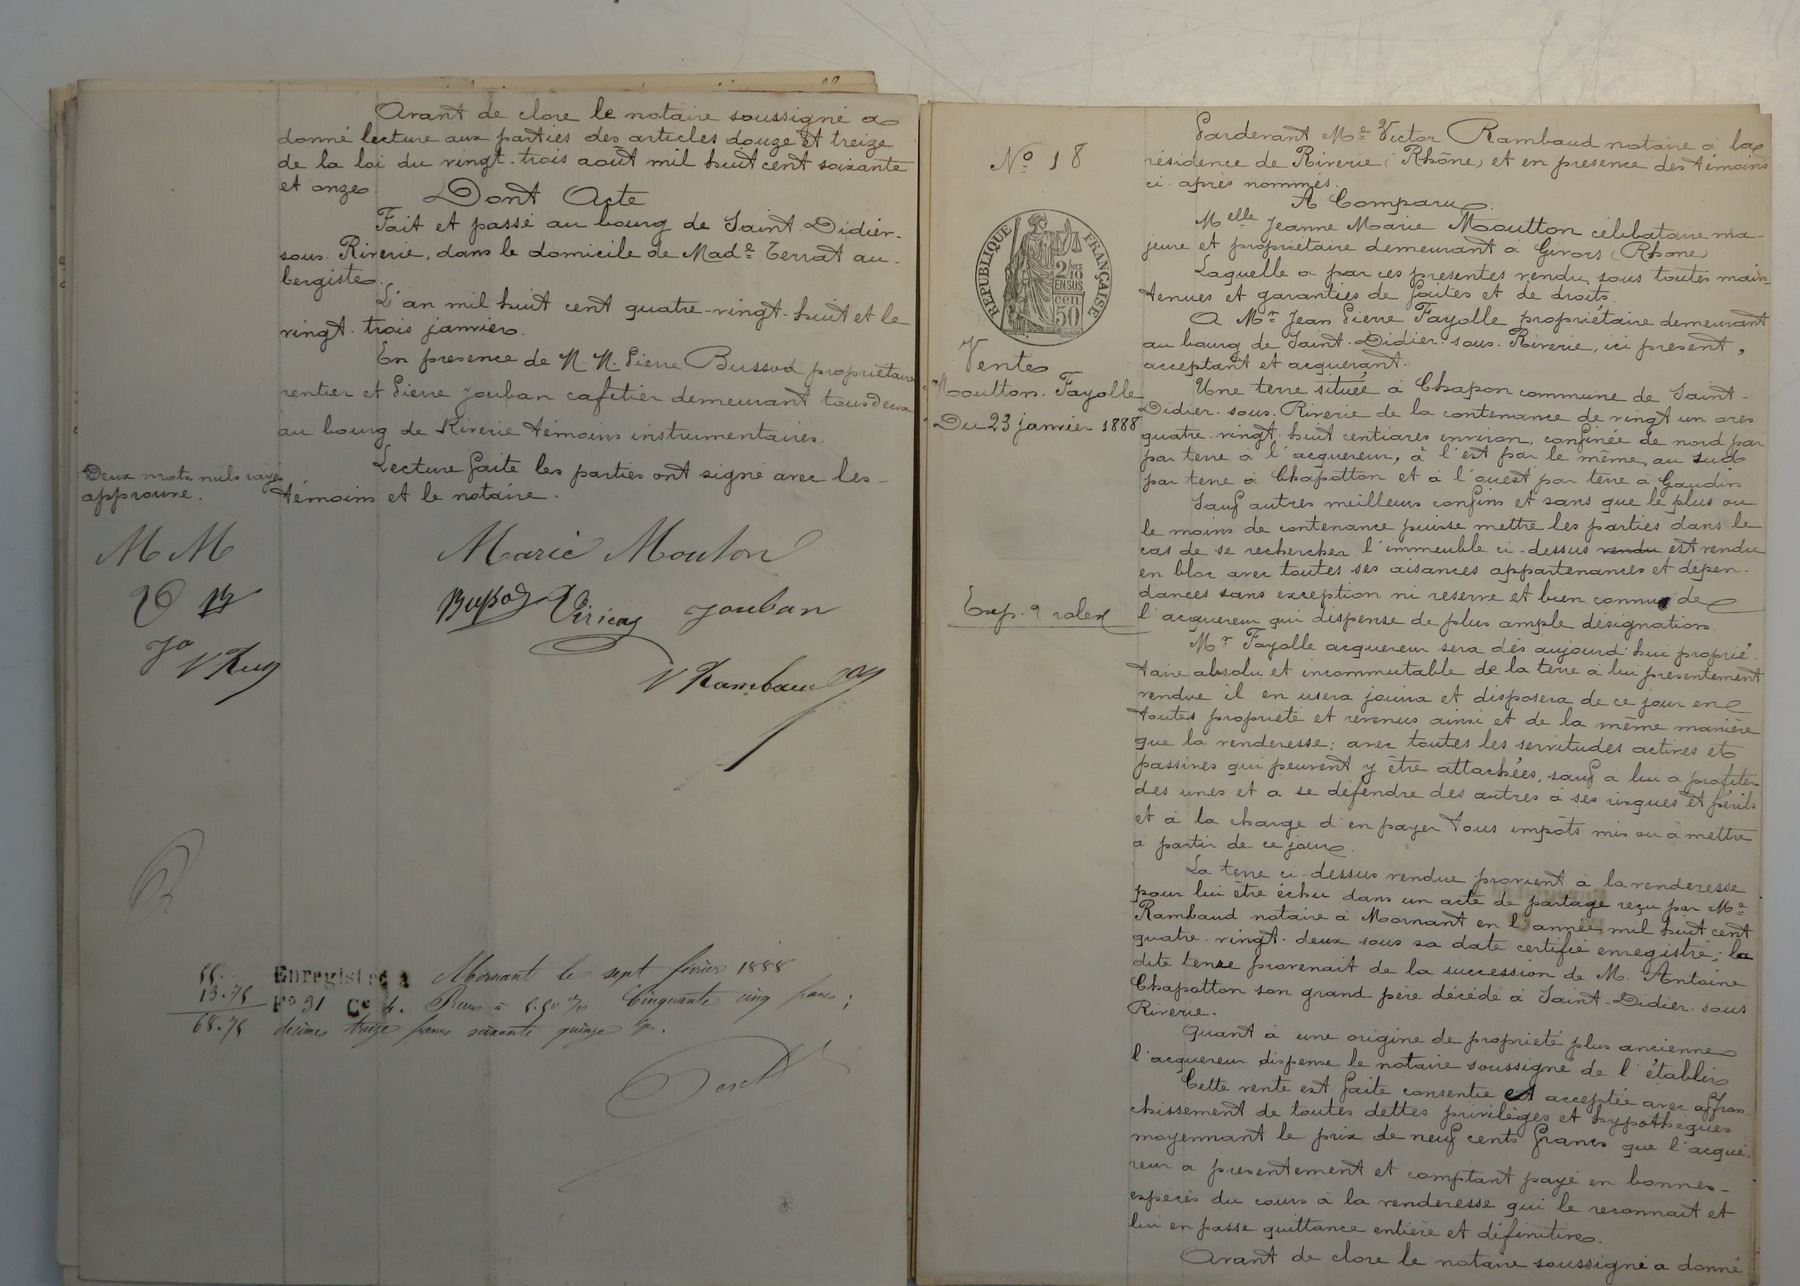 Avant de clore le notaire soussigné a
donné lecture aux parties des articles douze et treize
de la loi du vingt-trois août mil huit cent soixante
et onze.
Dont Acte
Fait et passé au bourg de Saint-Didier-
sous-Riverie, dans le domicile de Made Terrat au-
bergiste.
L'an mil huit cent quatre-vingt-huit et le
vingt-trois janvier.
En presence de M. M. Pierre Bussod propriétaire
rentier et Pierre Jouban cafetier demeurant tous deux
au bourg de Riverie témoins instrumentaires.
Lecture faite les parties ont signé avec les-
témoins et le notaire.
Deux mots nuls rayés
approuvé.
M M
Marie Mouton
Jouban
V Rambaud
55.
13.75
68.75
Enregistré à Mornant le sept février 1888
Fo 91 Ce 4. Reçu à 5.50 % Cinquante cinq francs;
décimes treize francs soixante quinze c.
No 18
RÉPUBLIQUE FRANÇAISE
2/10 EN SUS
50 cen
Vente
Moutton-Fayolle
Du 23 janvier 1888
Exp. 2 roles
Pardevant Me Victor Rambaud notaire à la
résidence de Riverie (Rhône) et en presence des témoins
ci-après nommés.
A Comparu
Melle Jeanne Marie Moutton célibataire ma-
jeure et propriétaire demeurant à Givors (Rhone)
Laquelle a par ces presentes vendu sous toutes main-
tenues et garanties de faites et de droits.
A Mr Jean Pierre Fayolle propriétaire demeurant
au bourg de Saint-Didier-sous-Riverie, ici present,
acceptant et acquerant.
Une terre située à Chapon commune de Saint-
Didier-sous-Riverie de la contenance de vingt un ares
quatre-vingt-huit centiares environ, confinée de nord par
par terre à l'acquereur, à l'est par le même, au sud
par terre à Chapotton et à l'ouest par terre à Gaudin
Sauf autres meilleurs confins et sans que le plus ou
le moins de contenance puisse mettre les parties dans le
cas de se rechercher l'immeuble ci-dessus vendu est vendu
en bloc avec toutes ses aisances appartenances et dépen-
dances sans exception ni reserve et bien connu de
l'acquereur qui dispense de plus ample désignation.
Mr Fayolle acquereur sera dès aujourd'hui proprié-
taire absolu et incommutable de la terre à lui présentement
vendue il en usera jouira et disposera de ce jour en
toutes propriété et revenus ainsi et de la même manière
que la venderesse; avec toutes les servitudes actives et
passives qui peuvent y être attachées, sauf à lui a profiter
des unes et a se défendre des autres à ses risques et périls
et à la charge d'en payer tous impôts mis ou à mettre
a partir de ce jour.
La terre ci-dessus vendue provient à la venderesse
pour lui être échu dans un acte de partage reçu par Me
Rambaud notaire à Mornant en l'année mil huit cent
quatre-vingt-deux sous sa date certifié enregistré; la
dite terre provenait de la succession de M. Antoine
Chapotton son grand père décédé à Saint-Didier-sous
Riverie.
Quant à une origine de propriété plus ancienne
l'acquereur dispense le notaire soussigné de l'établir
Cette vente est faite consentie et acceptée avec affran-
chissement de toutes dettes privilèges et hypothèques
moyennant le prix de neuf cents francs que l'acqué-
reur a presentement et comptant payé en bonnes-
espèces du cours à la venderesse qui le reconnait et
lui en passe quittance entière et définitive.
Avant de clore le notaire soussigné a donné